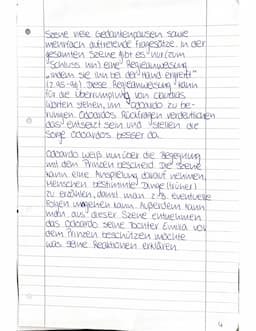 Szene viele Gedankenpausen sowie
mehrfach auftretende Fragesätze. In der
gesamten Szene gibt es nur (zum
Schluss hin) eine Regieanweisung
"indem sie ihn bei der Hand ergreift"
(Z. 95-96). Diese Regieanweisung kann
für die Überrumplung von Claudias
Worten stehen, um Odoardo zu be-
ruhigen. Odoardos Rückfragen verdeutlichen
das Entsetzt sein und stellen die
Sorge Odoardos besser da.
Odoardo weiß nun über die Begegnung
mit dem Prinzen bescheid. Die Szene
kann eine Anspielung darauf nehmen,
Menschen bestimmte Dinge (früher)
zu erzählen, damit man z.B. eventuelle
Folgen umgehen kann. Außerdem kann
man aus dieser Szene entnehmen
das Odoardo seine Tochter Emilia vor
dem Prinzen beschützen möchte
was seine Reaktionen erklären.
4